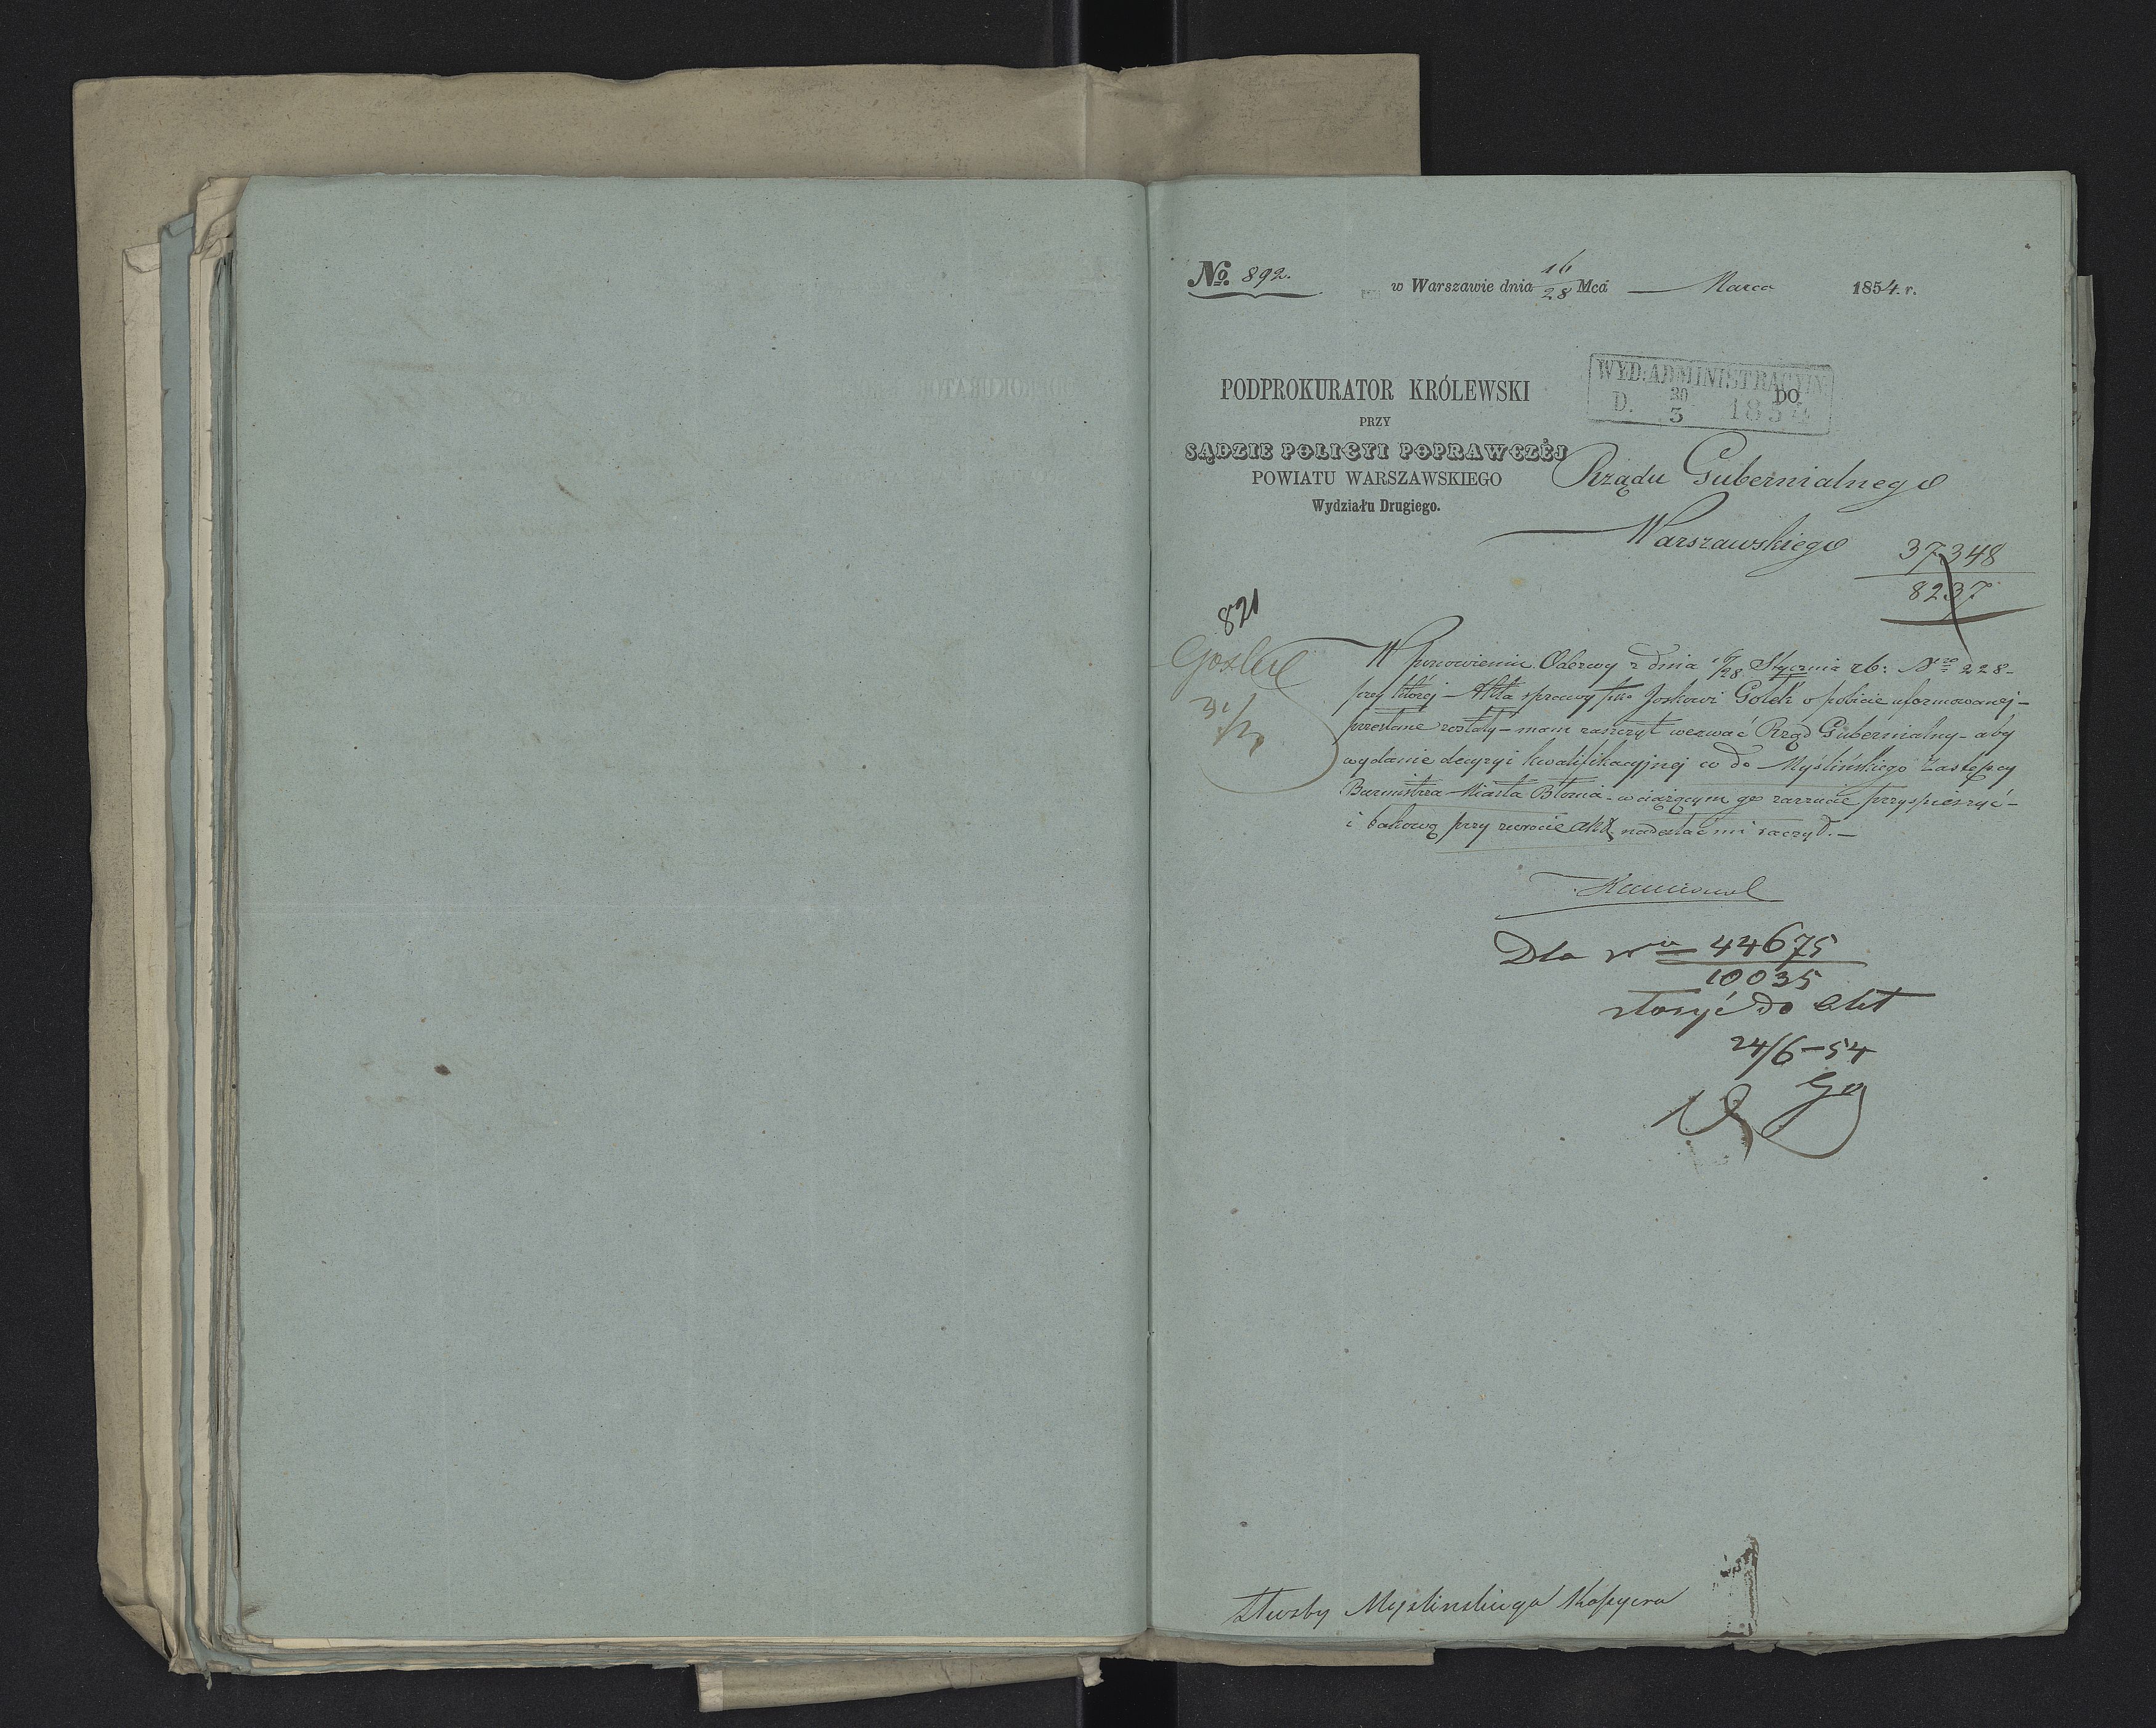 No. 892.
w Warszawie dnia 16/28 Mca Marca 1854. r.
PODPROKURATOR KRÓLEWSKI
PRZY
SĄDZIE POLICYI POPRAWCZÉJ
POWIATU WARSZAWSKIEGO
Wydziału Drugiego.
WYD: ADMINISTRACYJN
D. 30/3 1854
DO
Rządu Gubernialnego
Warszawskiego
37348
8237
821
31/3
W ponowieniu Odezwy z dnia 16/28 Stycznia rb: Nro 228 -
przy której - Akta sprawy pko Joskowi Goldk o pobicie uformowanej -
przesłane zostały - mam zaszczyt wezwać Rząd Gubernialny - aby
wydanie decyzyi kwalifikacyjnej co do Myślińskiego Zastępcy
Burmistrza Miasta Błonia - w ciążącym go zarzucie przyspieszyć -
i takową przy zwrocie akt nadesłać mi raczył. -
Dla Nru 44675
10035
złożyć do akt
24/6 - 54
Go
Służby Myslinskiego Kassyera